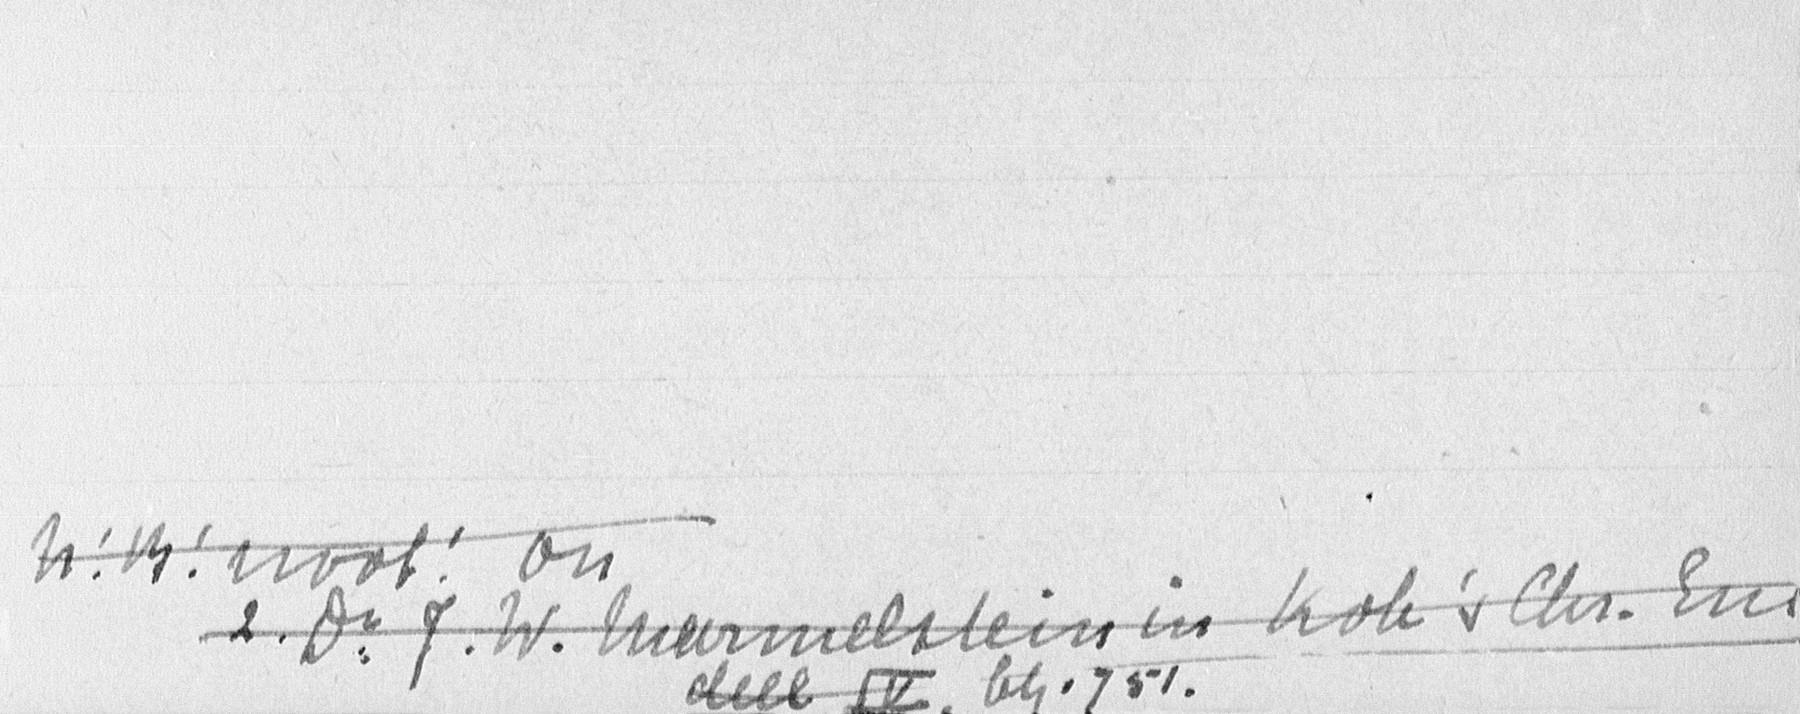 N.B. noot! on
2. Dr J. W. Marmelstein in Kok's Chr. Enc
deel IV, blz. 751.